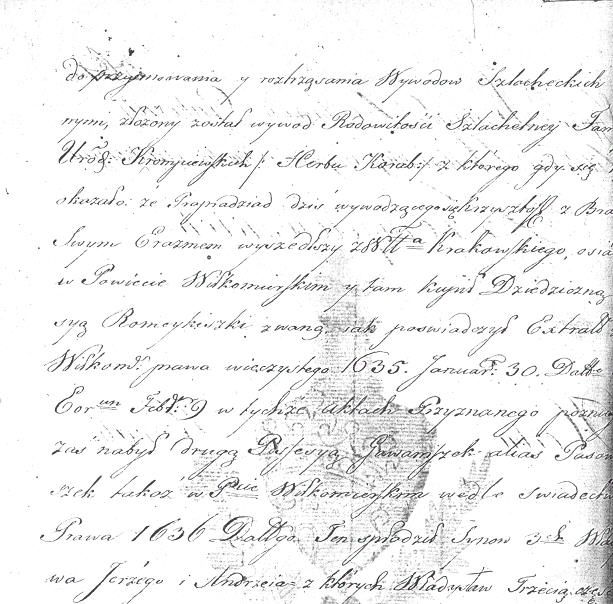 do przyjmowania y roztrząsania Wywodow Szlacheckich
nym, złożony został wywod Rodowitości Szlachetney Fam
Urodz: Herbu Korab:/ z ktorego gdy się
okazało że Prapradziad dziś wywodzącego się Krzysztoff z Bra
Swym Erazmem wyszedłszy z Wttwa Krakowskiego, osia
w Powiecie Wiłkomirskim y tam kupił Dziedziczną
syą Romeykiszki zwaną, jak poświadczył Extrakt
Wiłkom: prawa wieczystego 1635. Januar: 30. Datt
Eorun Febr: 9 w tychże Aktach Przyznanego poźniey
zas nabył drugą Possesyą alias
szek takoż w Pcie Wiłkomirskim wedle swiadect
Prawa 1636 Datłgo. Ten spłodził Synow 3ch Wła
wa Jerzego i Andrzeia z których Władysław Trzecią częś